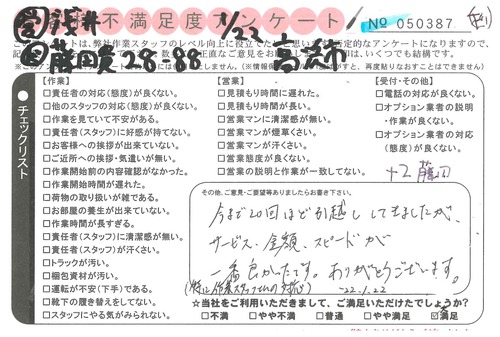 不満足度アンケート
1/22
No 050387
浅井
28-88
このアンケートは、弊社作業スタッフのレベル向上に役立てたいと思い
否定的なアンケートになりますので、
【作業】
□責任者の対応(態度)が良くない。
□他のスタッフの対応(態度)が良くない。
□作業を見ていて不安がある。
□責任者(スタッフ)に好感が持てない。
□お客様への挨拶が出来ていない。
□ご近所への挨拶・気遣いが無い。
□作業開始前の内容確認がなかった。
□作業開始時間が遅れた。
□荷物の取り扱いが雑である。
□お部屋の養生が出来ていない。
□作業時間が長すぎる。
□責任者(スタッフ)に清潔感が無い。
□責任者(スタッフ)が汗くさい。
□トラックが汚い。
□梱包資材が汚い。
□運転が不安(下手)である。
□靴下の履き替えをしてない。
□スタッフにやる気がみられない。
チェックリスト
【営業】
□見積もり時間に遅れた。
□見積もり時間が長い。
□営業マンに清潔感が無い。
□営業マンが煙草くさい。
□営業マンが汗くさい。
□営業態度が良くない。
□営業の説明と作業が一致してない。
【受付・その他】
□電話の対応が良くない。
□オプション業者の説明
・作業が良くない。
□オプション業者の対応
(態度)が良くない。
その他、ご意見・ご要望等ありましたらお書き下さい。
今まで20回ほど引越ししてきましたが、
サービス・金額、スピードが
一番良かったです。ありがとうございます。
(特に作業スタッフさんの対応が)
22.1.22
☆当社をご利用いただきまして、ご満足いただけたでしょうか?
□不満 □やや不満 □普通 □やや満足 ☑満足